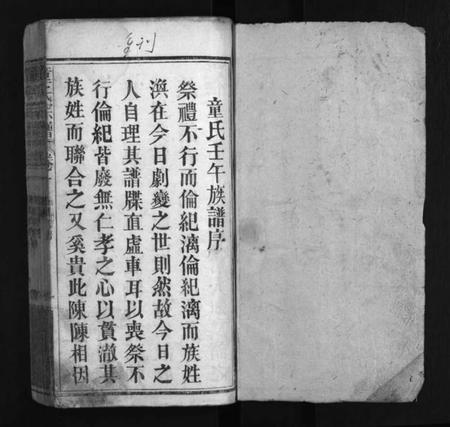 童氏壬午族譜序
祭禮不行而倫紀漓倫紀漓而族姓
渙在今日劇變之世則然故今日之
人自理其譜牒直虛車耳以喪祭不
行倫紀皆廢無仁孝之心以貫澈其
族姓而聯合之又奚貴此陳陳相因